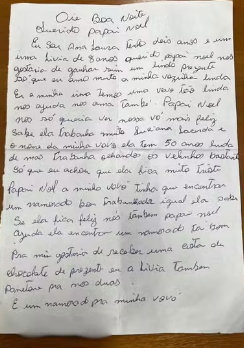 Oie Boa Noite
Querido papai noel
Eu Sou Ana Laura tenho dois anos e um
uma Livia de 8 anos querido papai noel nos
gostaria de ganhar um lindo presente
nos que eu amo muito a minha vozinha linda
Eu e minha irmã temos uma vovó tão linda
nos ajuda nos ama também. Papai Noel
nos só queria ver nossa vó mais feliz
sabe ela trabalha muito Luciana Lacerda e
o nome da minha vovó ela tem 50 anos linda
de mais trabalha olhando os velinhos bastante
Só que eu achou que ela fica muito triste
Papai Noel a minha vovó tinha que encontra
um namorado bom trabalhador igual ela
Se ela fica feliz nós também papai noel
ajuda ela encontra um namorado tá bom
Pra mim gostaria de receber uma cesta de
chocolate de present eu a Livia também
panetone pra nos duas.
E um namorado pra minha vovó